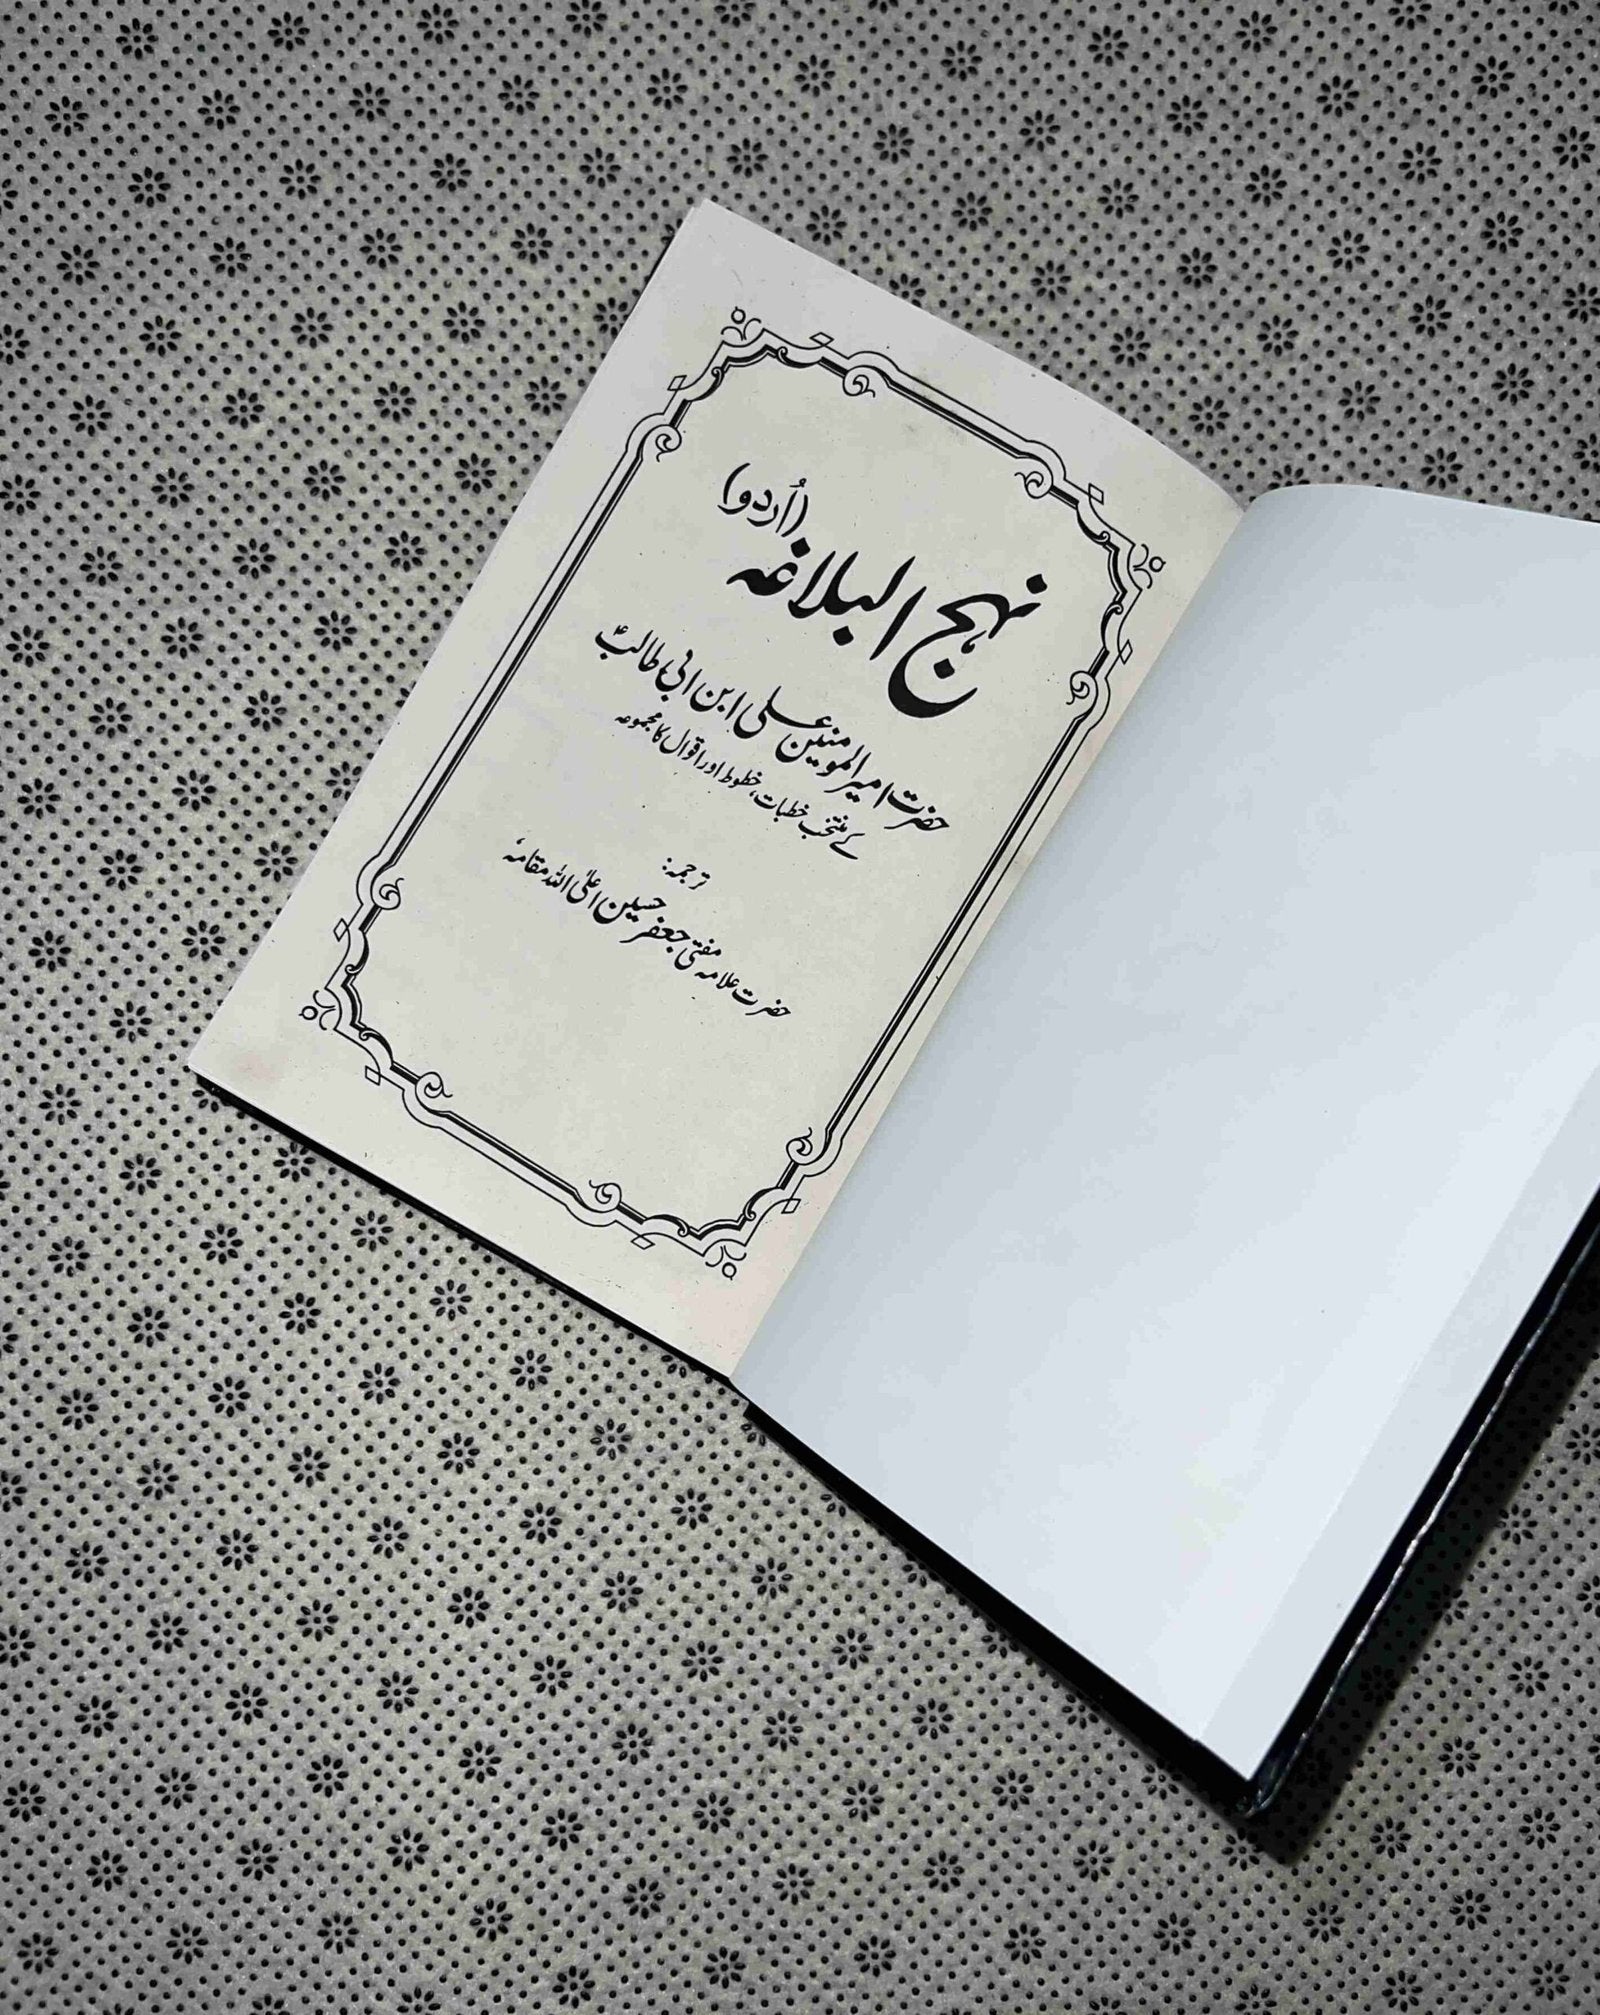 نہج البلاغہ (اُردو)
حضرت امیرالمومنین علی ابن ابی طالبؑ
کے منتخب خطبات، خطوط اور اقوال کا مجموعہ
ترجمہ:
حضرت علامہ مفتی جعفر حسین اعلی اللہ مقامہٗ